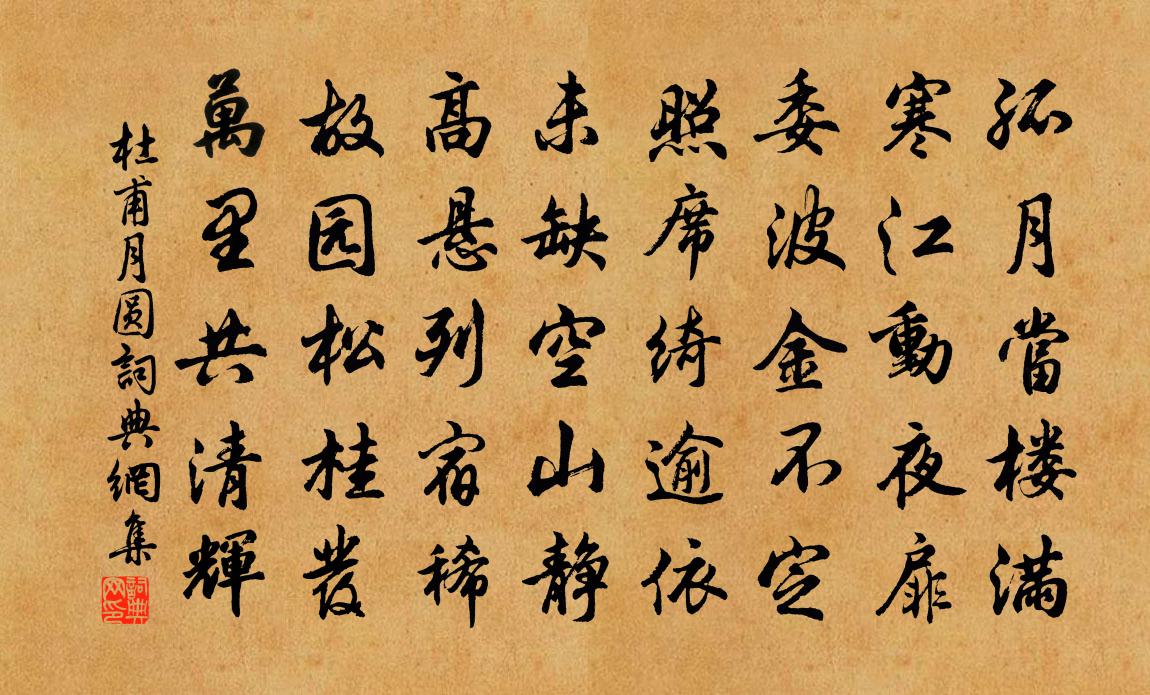 孤月當楼满
寒江動夜扉
委波金不定
照席綺逾依
未缺空山静
高悬列宿稀
故园松桂發
萬里共清輝
杜甫月圓詞典網集
詞典
网印